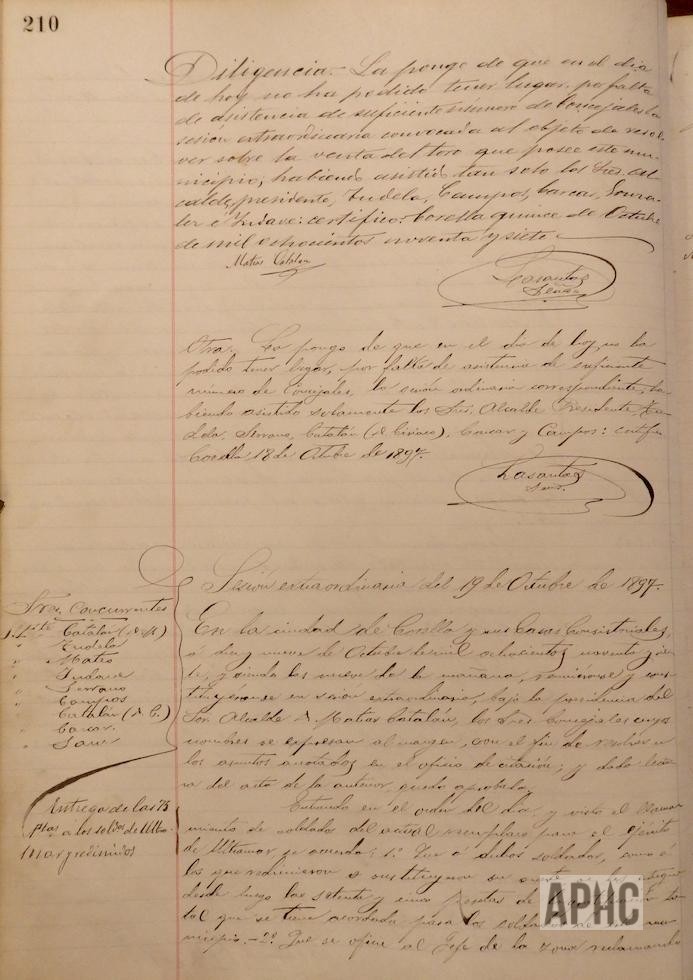 210
Diligencia.- La pongo de que en el dia
de hoy no ha podido tener lugar, por falta
de asistencia de suficiente número de Concejales la
sesión extraordinaria convocada al objeto de resol-
ver sobre la venta del toro que posee este mu-
nicipio, habiendo asistido tan solo los Sres. Al-
calde, presidente, Tudela, Campos, Garcas, Gonza-
lez é Indave: certifico: Corella quince de Octubre
de mil ochocientos noventa y siete.
Matias Catalán
Lasantas
Otra. La pongo de que en el dia de hoy, no ha
podido tener lugar, por falta de asistencia de suficiente
número de Concejales, la sesión ordinaria correspondiente, ha-
biendo asistido solamente los Sres. Alcalde Presidente, Tu-
dela, Serrano, Catalán (D. Ciriaco), y Campos: certifico
Corella 18 de Octubre de 1897.
Lasantas
Sesión extraordinaria del 19 de Octubre de 1897.
Sres. Concurrentes
Catalán (D. M.)
Tudela
Mateo
Indave
Serrano
Campos
Catalán (D. C.)
En la ciudad de Corella y sus Casas Consistoriales,
á diez y nueve de Octubre de mil ochocientos noventa y sie-
te, y siendo las nueve de la mañana, reuniéronse y cons-
tituyeronse en sesión extraordinaria, bajo la presidencia del
Sor. Alcalde D. Matias Catalán, los Sres. Concejales cuyos
nombres se expresan al margen, con el fin de resolver
los asuntos anotados en el oficio de citación; y dada lectu-
ra del acta de la anterior, quedó aprobada.
Entrega de las 75
ptas. a los soldos de Ultra-
mar y redimidos
Entrando en el orden del dia, y visto el llama-
miento de soldados del actual reemplazo para el ejército
de Ultramar se acuerda: 1º Que á dichos soldados, como á
los que redimieron o sustituyeron su suerte se les entregue
desde luego las setenta y cinco pesetas de
tal que se tiene acordada para los soldados de
nicipio.- 2º Que se oficie al Jefe de la zona reclamando
APHC